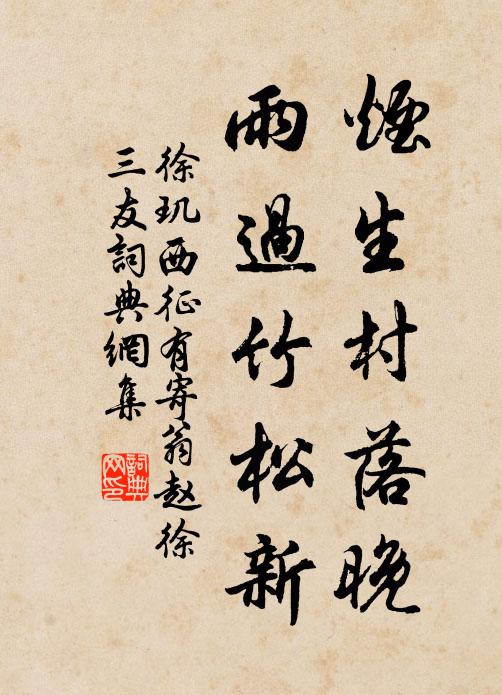 煙生村落晚
雨過竹松新
徐玑西征有寄翁赵徐
三友詞典網集
詞典網印